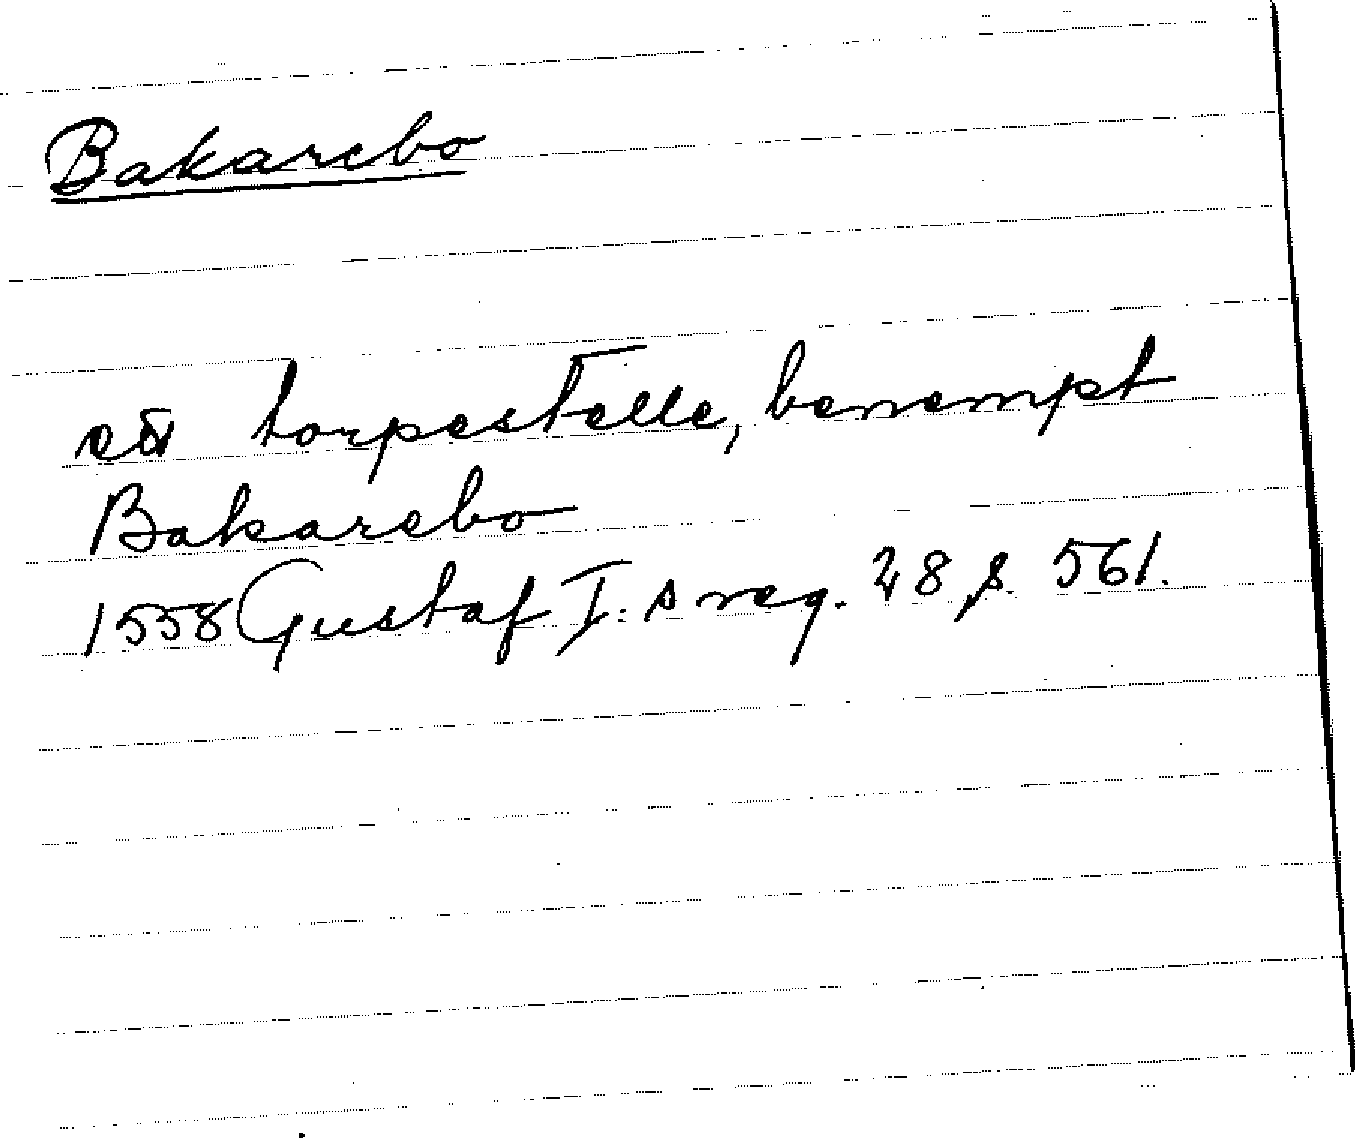 Bakarebo
ett torpestelle, benempt
Bakarebo
1558 Gustaf I:s reg. 28 s. 561.